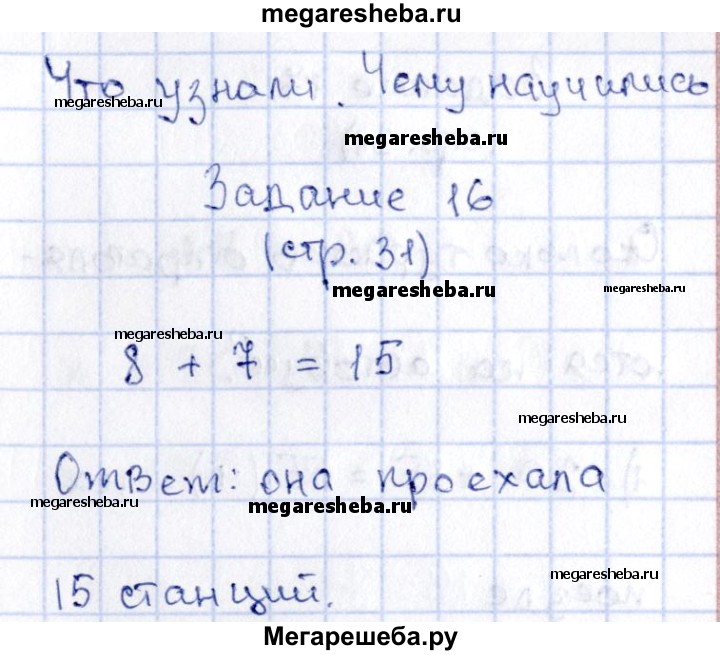 megaresheba.ru
Что узнали. Чему научились
megaresheba.ru
megaresheba.ru
Задание 16
(стр. 31)
megaresheba.ru
megaresheba.ru
megaresheba.ru
8 + 7 = 15
megaresheba.ru
Ответ: она проехала
megaresheba.ru
megaresheba.ru
megaresheba.ru
15 станций.
Мегарешеба.ру